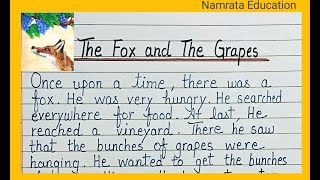 Namrata Education
The Fox and The Grapes
Once upon a time, there was a
fox. He was very hungry. He searched
everywhere for food. At last, He
reached a vineyard. There he saw
that the bunches of grapes were
hanging. He wanted to get the bunches